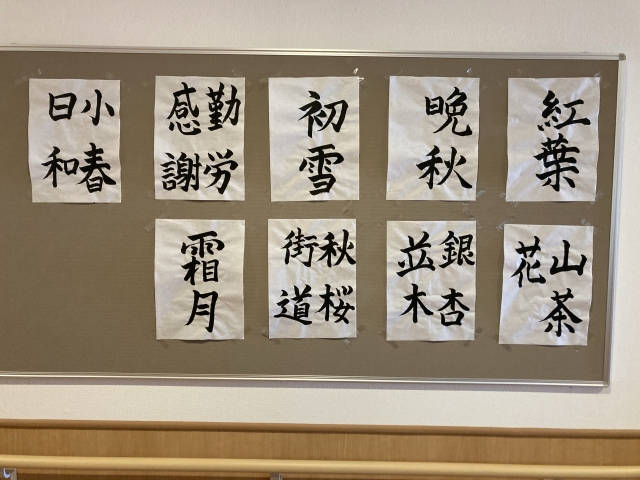 紅葉
晩秋
初雪
勤労
感謝
小春
日和
山茶
花
銀杏
並木
秋桜
街道
霜月